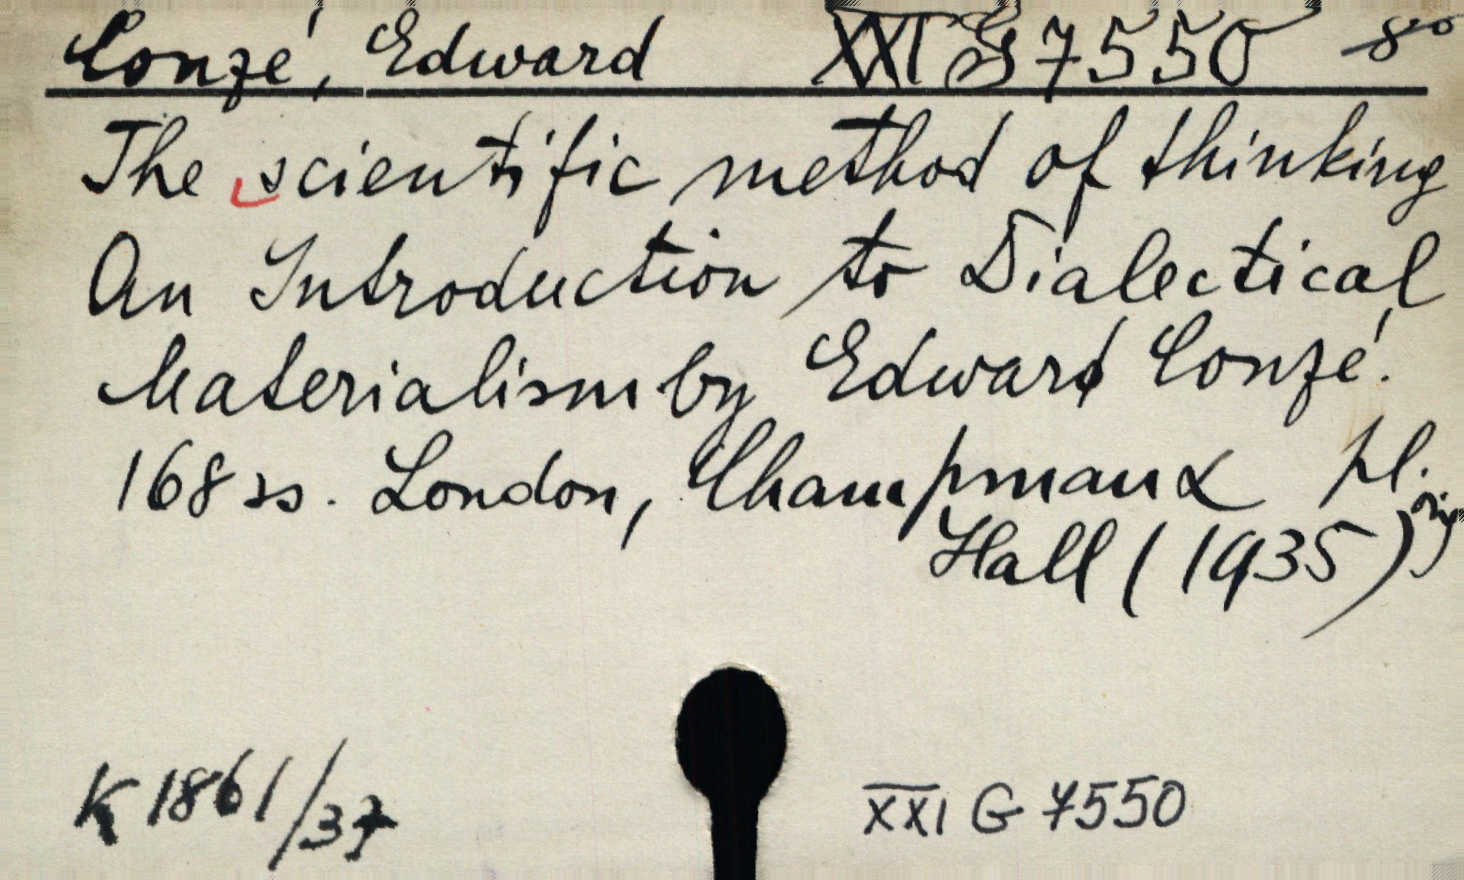 Conzé, Edward XXI G 7550 8°
The scientific method of thinking
An Introduction to Dialectical
Materialism by Edward Conzé.
168 ss. London, Champman & pl.
Hall (1935) orig
K 1861/37 XXI G 7550